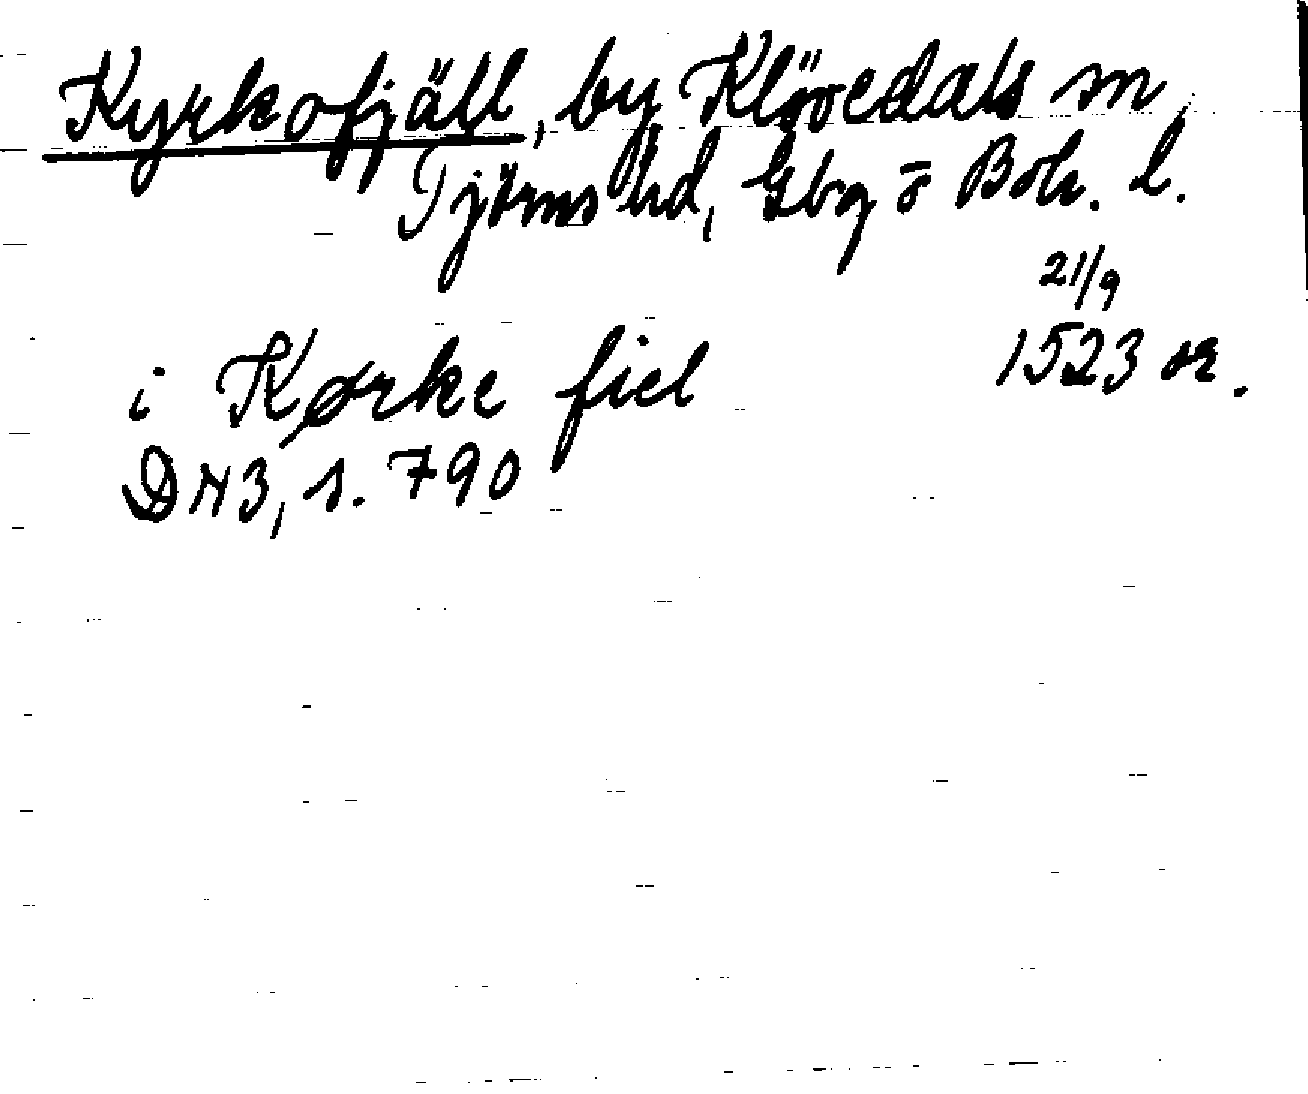 Kyrkofjäll, by Klövedals sn,
Tjörns hd, Gbg o Boh. l.
21/9
i Kørke fiel 1523 or.
DN 3, s. 790